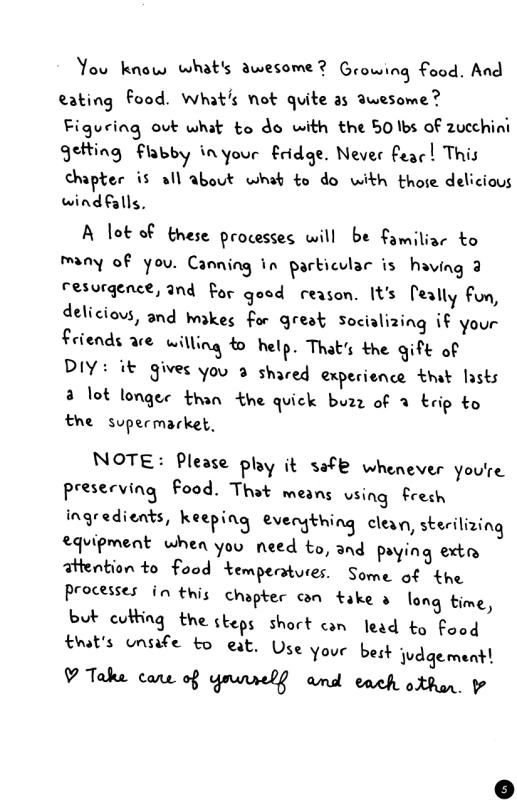 You know what's awesome? Growing food. And
eating food. What's not quite as awesome?
Figuring out what to do with the 50 lbs of zucchini
getting flabby in your fridge. Never fear! This
chapter is all about what to do with those delicious
windfalls.
A lot of these processes will be familiar to
many of you. Canning in particular is having a
resurgence, and for good reason. It's really fun,
delicious, and makes for great socializing if your
friends are willing to help. That's the gift of
DIY: it gives you a shared experience that lasts
a lot longer than the quick buzz of a trip to
the supermarket.
NOTE: Please play it safe whenever you're
preserving food. That means using fresh
ingredients, keeping everything clean, sterilizing
equipment when you need to, and paying extra
attention to food temperatures. Some of the
processes in this chapter can take a long time,
but cutting the steps short can lead to food
that's unsafe to eat. Use your best judgement!
♡ Take care of yourself and each other. ♡
5